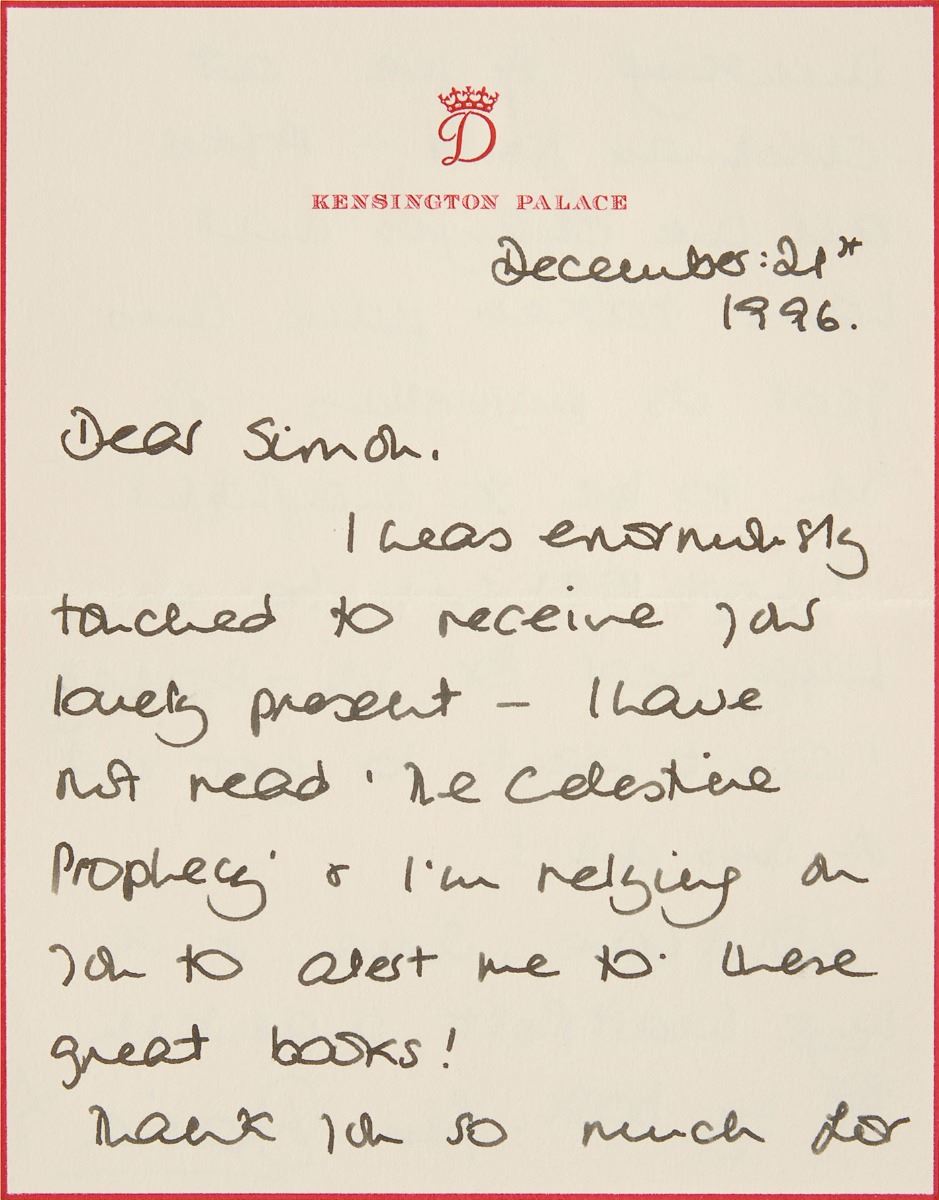 D
KENSINGTON PALACE
December: 21st
1996.
Dear Simon.
I was enormously
touched to receive your
lovely present – I have
not read 'The Celestine
Prophecy' & I'm relying on
you to alert me to these
great books!
Thank you so much for